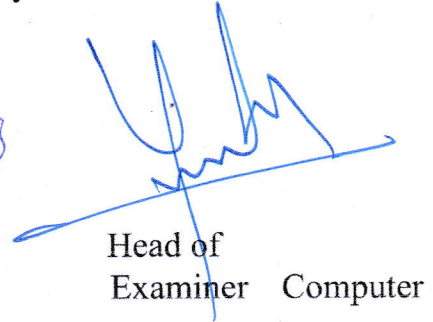 Head of
Examiner Computer